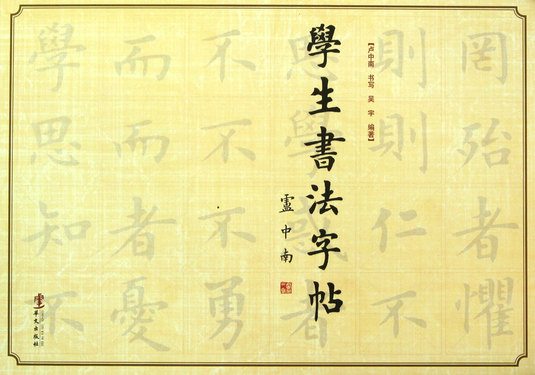 學生書法字帖
盧中南
【卢中南 书写 吴宇 编著】
學而不思則罔
思而不學則殆
知者不惑仁者
不憂勇者不懼
華文出版社